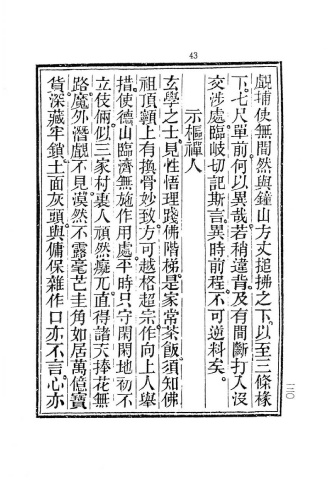 43
覰捕使無間然與鐘山方丈搥拂之下以至三條椽
下七尺單前何以異哉若稍違背及有間斷打入沒
交涉處臨岐切記斯言異時前程不可逆料矣
示樞禪人
玄學之士見性悟理踐佛階梯是家常茶飯須知佛
祖頂𩕳上有換骨妙致方可越格超宗作向上人舉
措使德山臨濟無施作用處平時只守閑閑地初不
立伎倆似三家村裏人頑然癡兀直得諸天捧花無
路魔外潛覰不見漠然不露毫芒圭角如居萬億寶
貨深藏牢鎖土面灰頭與傭保雜作口亦不言心亦
三〇